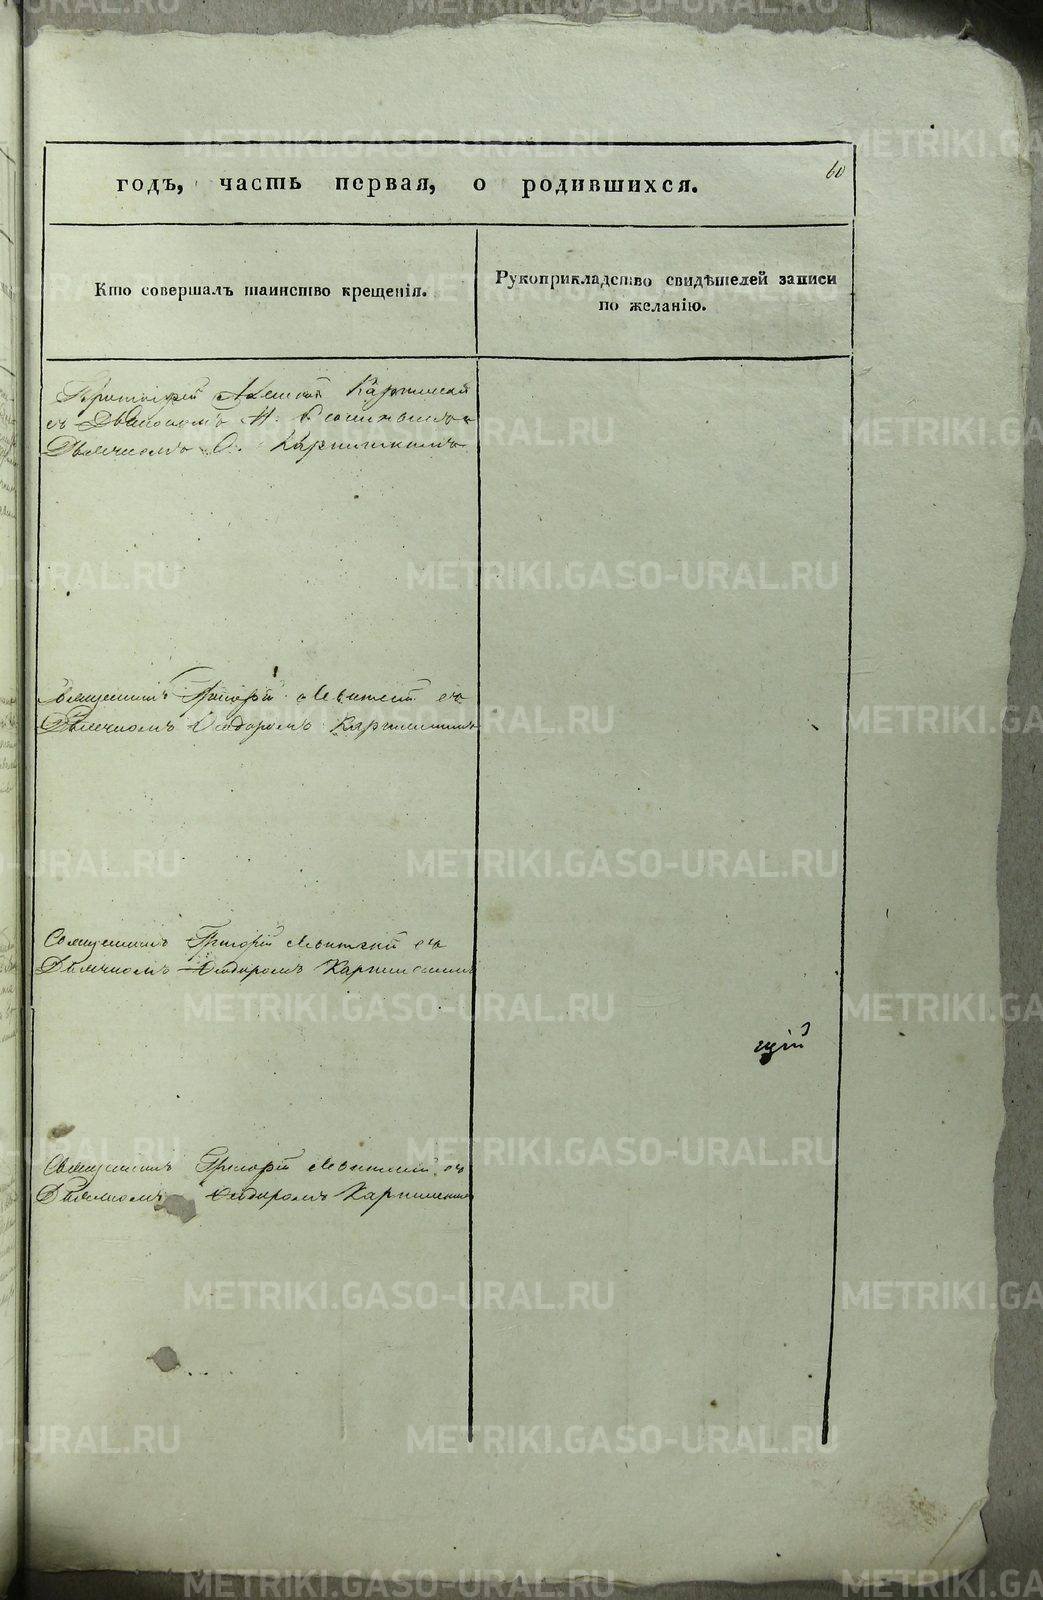 60
годъ, часть первая, о родившихся.
Кто совершалъ таинство крещенія.
Рукоприкладство свидѣтелей записи
по желанію.
Карпинскій
съ Діакономъ Н.
Дьячкомъ Ѳ. Карпинскимъ
Священникъ Григорій Левитскій съ
Дьячкомъ Ѳеодоромъ Карпинскимъ
Священникъ Григорій Левитскій съ
Дьячкомъ Ѳеодоромъ Карпинскимъ
щій
Священникъ Григорій Левитскій съ
Дьячкомъ Ѳеодоромъ Карпинскимъ
METRIKI.GASO-URAL.RU